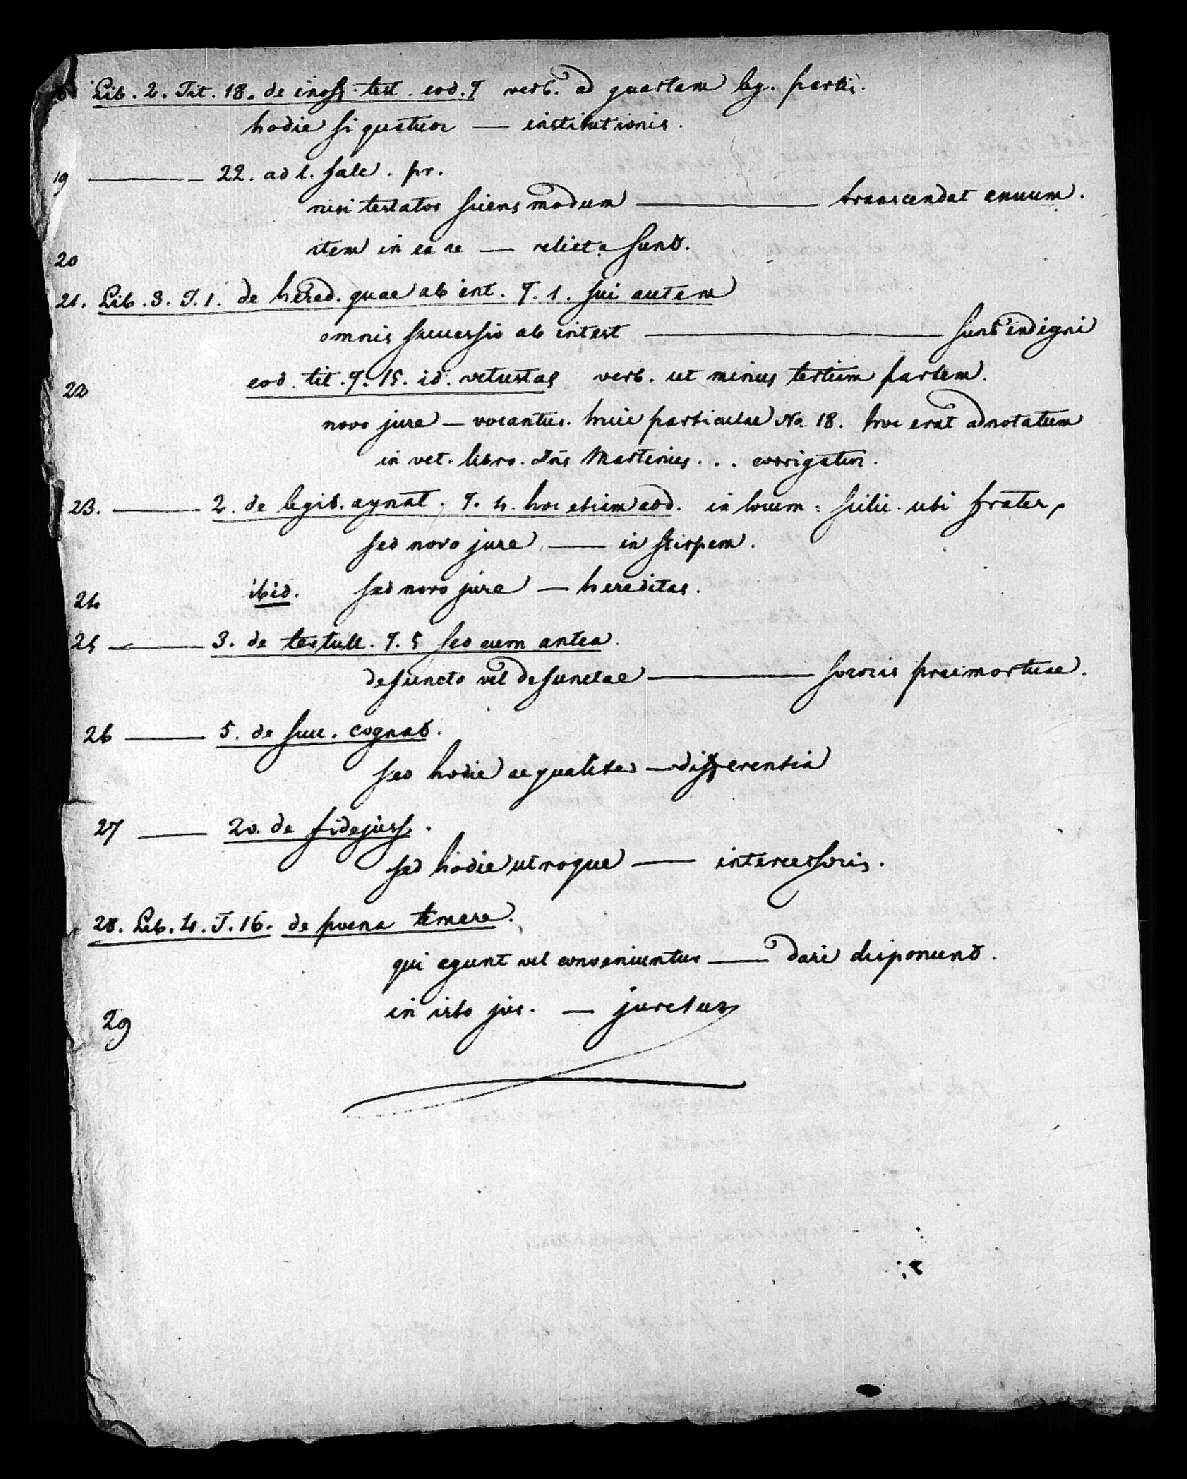 Lib. 2. Tit. 18. de inoff. test. eod. § verb. ad quartam leg. partis.
hodie si quatuor — institutionis.
19 — 22. ad l. falc. pr.
nisi testator sciens modum — transcendat annum.
20 item in ea re — relicta sunt.
21. Lib. 3. T. 1. de hered. quae ab int. §. 1. sui autem
omnis successio ab intest — sunt indigni
22 eod. tit. §. 15. id. vetustas verb. ut minus tertiam partem.
novo jure — vocantur. huic particulae No. 18. hoc erat adnotatum
in vet. libro. Dns Martinus . . . corrigatur.
23. — 2. de legit. agnat. §. 4. hoc etiam add. in locum: filii ubi frater,
sed novo jure — in stirpem.
24 ibid. sed novo jure — hereditas.
25 — 3. de tertull. §. 5 sed cum antea.
defuncto vel defunctae — sororis praemortuae.
26 — 5. de suc. cognat.
sed hodie aequalitas — differentia
27 — 20. de fidejuss.
sed hodie utroque — intercessoris.
28. Lib. 4. T. 16. de poena temere.
qui agunt vel conveniuntur — dari disponunt.
29 in isto jur. — juretur